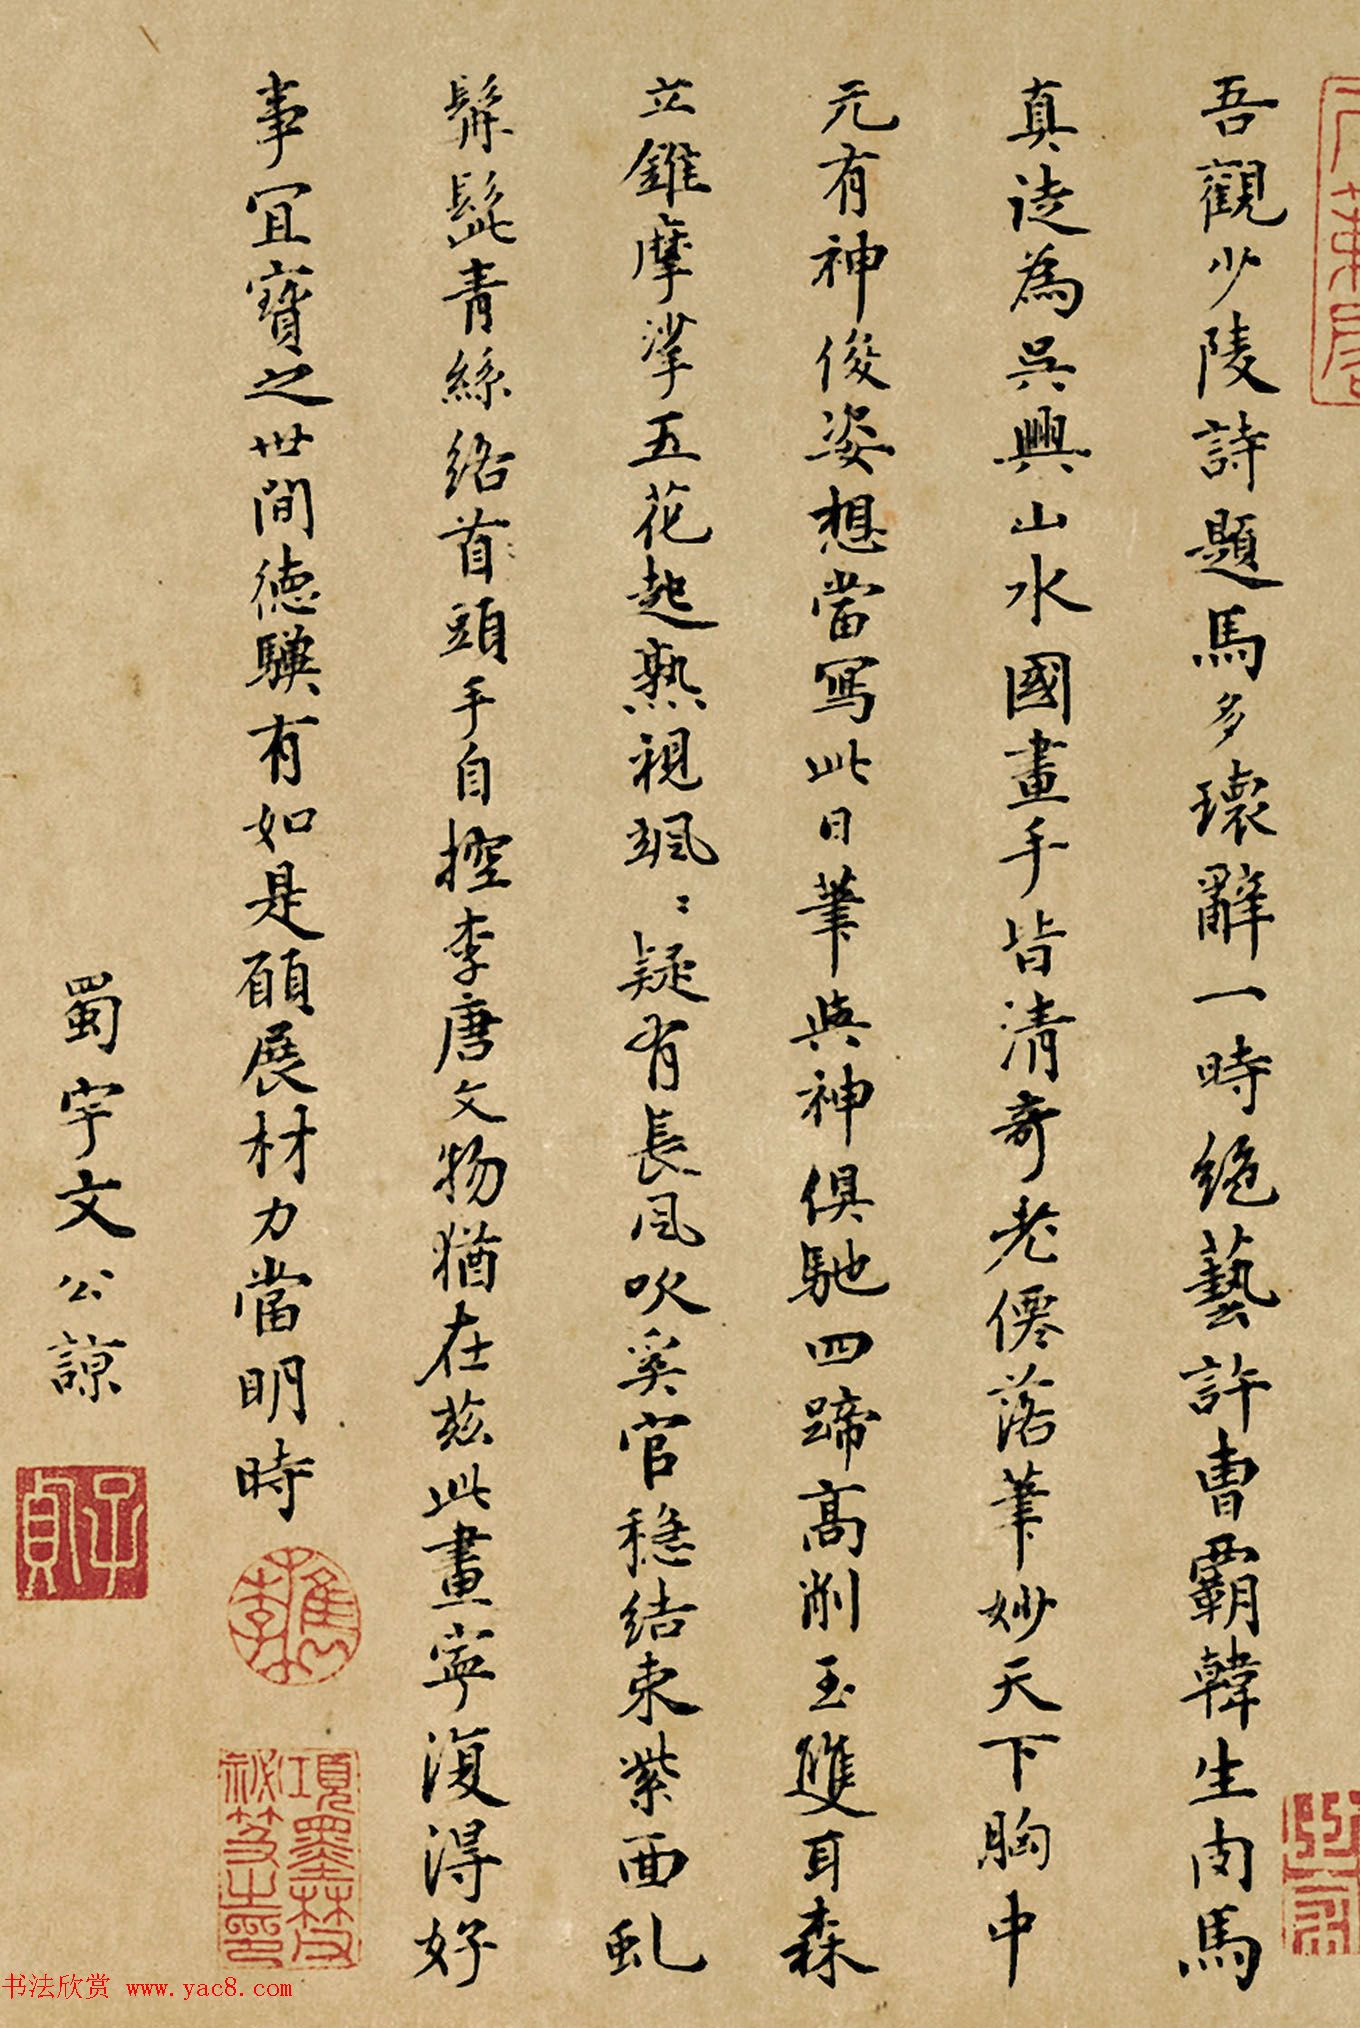 吾觀少陵詩題馬多瓌辭一時絕藝許曹霸韓生肉馬
真徒為吳興山水國畫手皆清奇老僊落筆妙天下胸中
元有神俊姿想當寫此日筆與神俱馳四蹄高削玉雙耳森
立錐摩挲五花起熟視颯〻疑有長風吹奚官穩結束紫面虬
髥髭青絲絡首頭手自控李唐文物猶在茲此畫寧復得好
事宜寶之世間德驥有如是願展材力當明時
蜀宇文公諒
子貞
項墨林父
祕笈之印
书法欣赏 www.yac8.com